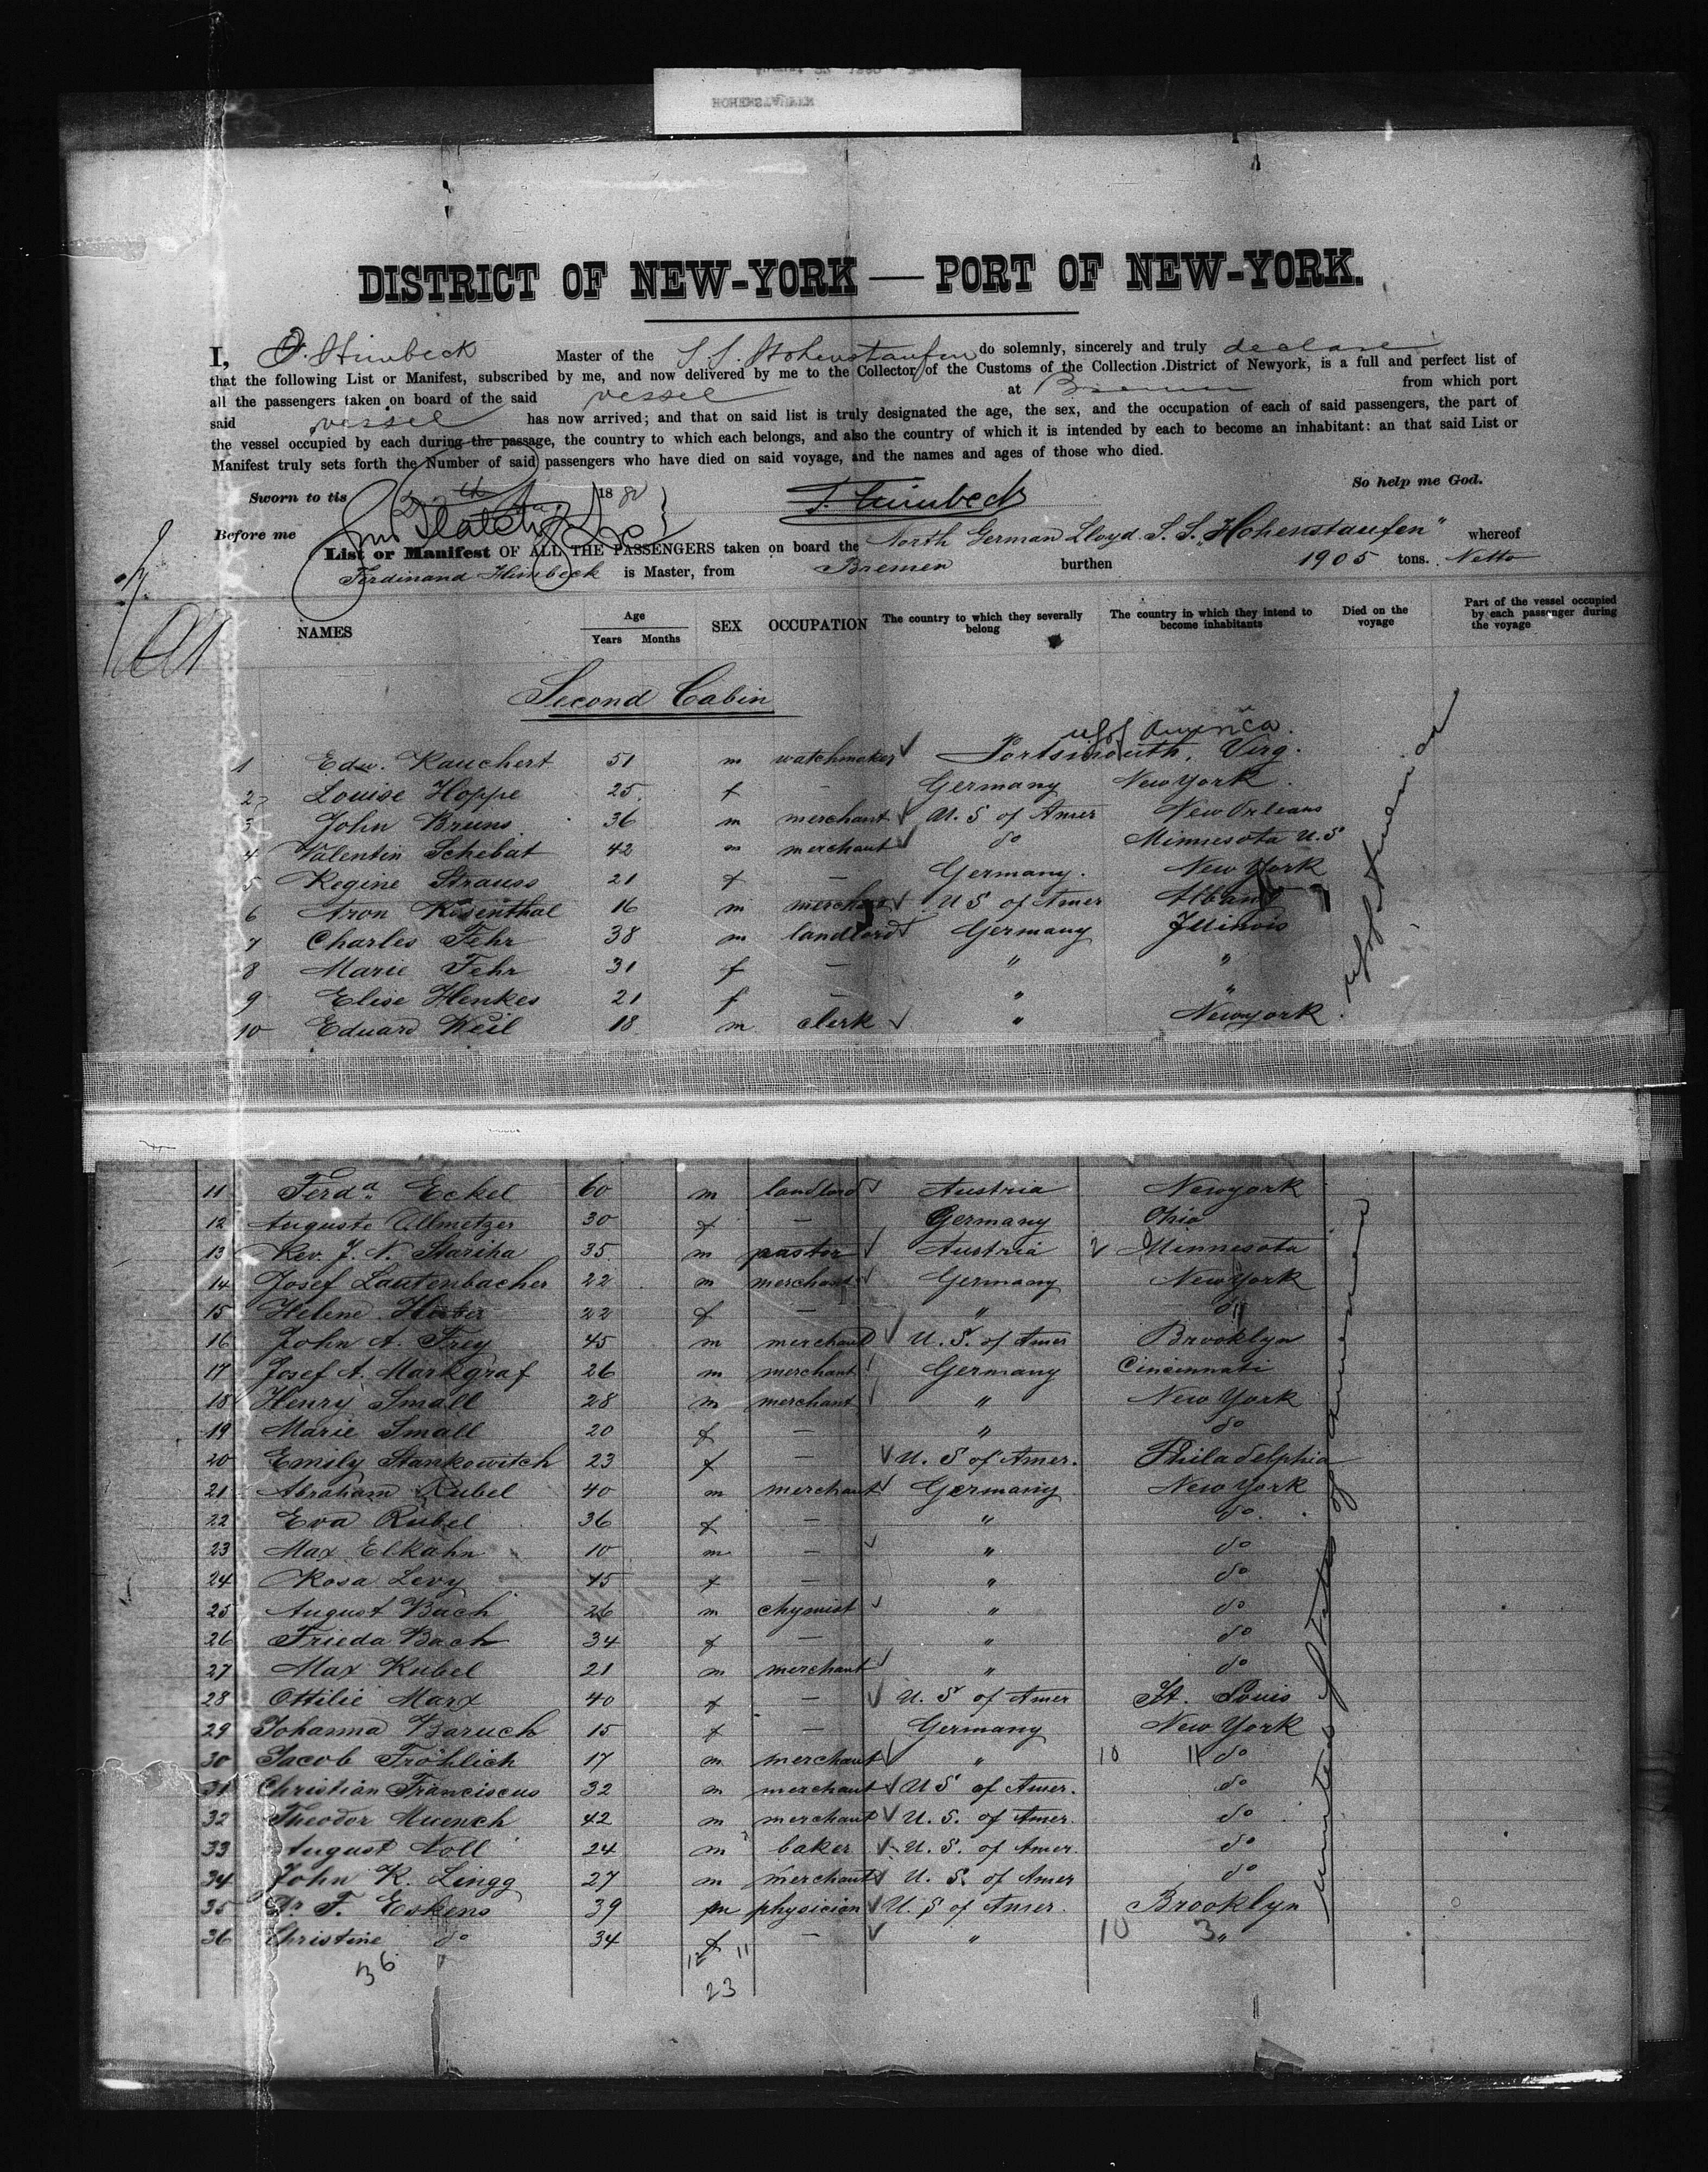 HOHENSTAUFEN
DISTRICT OF NEW-YORK — PORT OF NEW-YORK.
I, F. Himbeck Master of the S. S. Hohenstaufen do solemnly, sincerely and truly declare
that the following List or Manifest, subscribed by me, and now delivered by me to the Collector of the Customs of the Collection District of Newyork, is a full and perfect list of
all the passengers taken on board of the said vessel at Bremen from which port
said vessel has now arrived; and that on said list is truly designated the age, the sex, and the occupation of each of said passengers, the part of
the vessel occupied by each during the passage, the country to which each belongs, and also the country of which it is intended by each to become an inhabitant: an that said List or
Manifest truly sets forth the Number of said passengers who have died on said voyage, and the names and ages of those who died.
So help me God.
Sworn to tis 1880 F. Himbeck
Before me
List or Manifest OF ALL THE PASSENGERS taken on board the North German Lloyd S. S. "Hohenstaufen" whereof
Ferdinand Himbeck is Master, from Bremen burthen 1905 tons. Netto
NAMES Age Years Months SEX OCCUPATION The country to which they severally belong The country in which they intend to become inhabitants Died on the voyage Part of the vessel occupied by each passenger during the voyage
Second Cabin
U S of America.
1 Edw. Rauchert 51 m watchmaker Portsmouth, Virg.
2 Louise Hoppe 25 f — Germany New York
3 John Bruns 36 m merchant U. S of Amer New Orleans
4 Valentin Schebat 42 m merchant do Minnesota U. S
5 Regine Strauss 21 f — Germany. New York
6 Aron Rosenthal 16 m merchant U S of Amer Albany
7 Charles Fehr 38 m landlord Germany Illinois
8 Marie Fehr 31 f — " "
9 Elise Henkes 21 f — " "
10 Eduard Weil 18 m clerk " Newyork
11 Ferda. Eckel 60 m landlord Austria Newyork
12 Auguste Ollmetzer 30 f — Germany Ohio
13 Rev. J. N. Stariha 35 m pastor Austria Minnesota
14 Josef Lautenbacher 22 m merchant Germany New York
15 Helene 22 f — " do
16 John A. Frey 45 m merchant U. S. of Amer Brooklyn
17 Josef A. Markgraf 26 m merchant Germany Cincinnati
18 Henry Small 28 m merchant " New York
19 Marie Small 20 f — " do
20 Emily Stankowitch 23 f — U. S of Amer. Philadelphia
21 Abraham Rubel 40 m merchant Germany New York
22 Eva Rubel 36 f — " do.
23 Max Elkahn 10 m — " do
24 Rosa Levy 45 f — " do
25 August Bach 26 m chymist " do
26 Frieda Bach 34 f — " do
27 Max Rubel 21 m merchant " do
28 Ottilie Marx 40 f — U. S of Amer St. Louis
29 Johanna Baruch 15 f — Germany New York
30 Jacob Fröhlich 17 m merchant " 10 11 do
31 Christian Franciscus 32 m merchant U S of Amer. do
32 Theodor Muench 42 m merchant U. S. of Amer. do
33 August Noll 24 m baker U. S. of Amer. do
34 John K. Lingg 27 m merchant U. S. of Amer do
35 Dr. F. Eskens 39 m physician U. S of Amer. Brooklyn
36 Christine do 34 f — " 10 3 "
36 12 11
23
United States of America